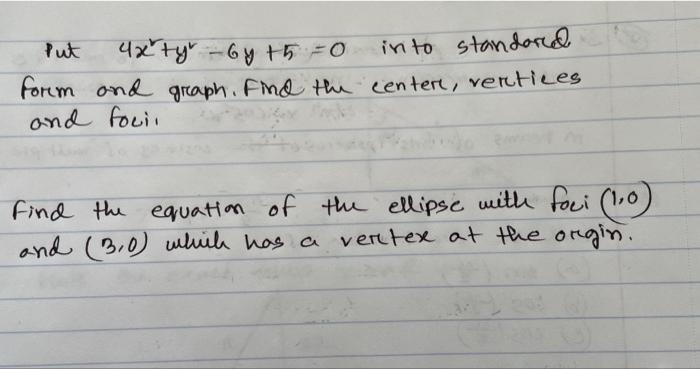 Put 4x²+y² -6y +5 =0 into standard
form and graph. Find the center, vertices
and foci.
Find the equation of the ellipse with foci (1,0)
and (3,0) which has a vertex at the origin.